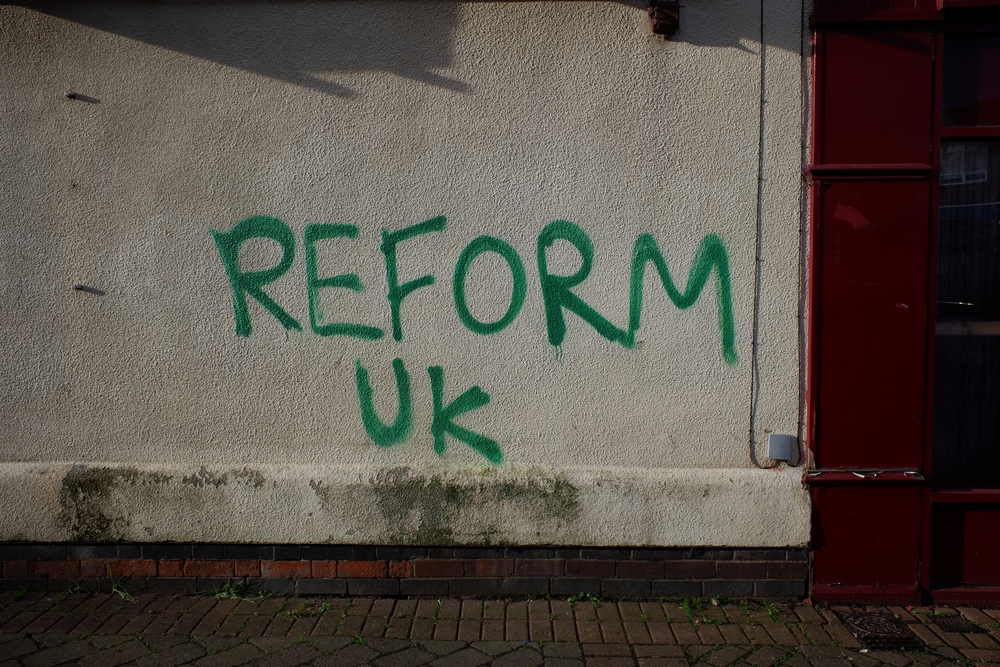 REFORM
UK